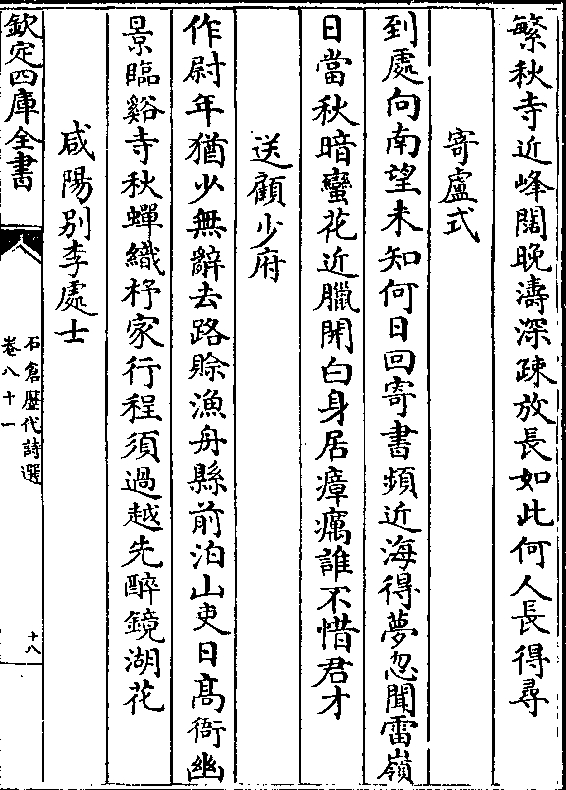 繁秋寺近峰闊晚濤深疎放長如此何人長得尋
寄盧式
到處向南望未知何日回寄書頻近海得夢忽聞雷嶺
日當秋暗蠻花近臘開白身居瘴癘誰不惜君才
送顧少府
作尉年猶少無辭去路賒漁舟縣前泊山吏日高衙幽
景臨谿寺秋蟬織杼家行程須過越先醉鏡湖花
咸陽别李處士
欽定四庫全書
石倉歷代詩選
卷八十一
十八